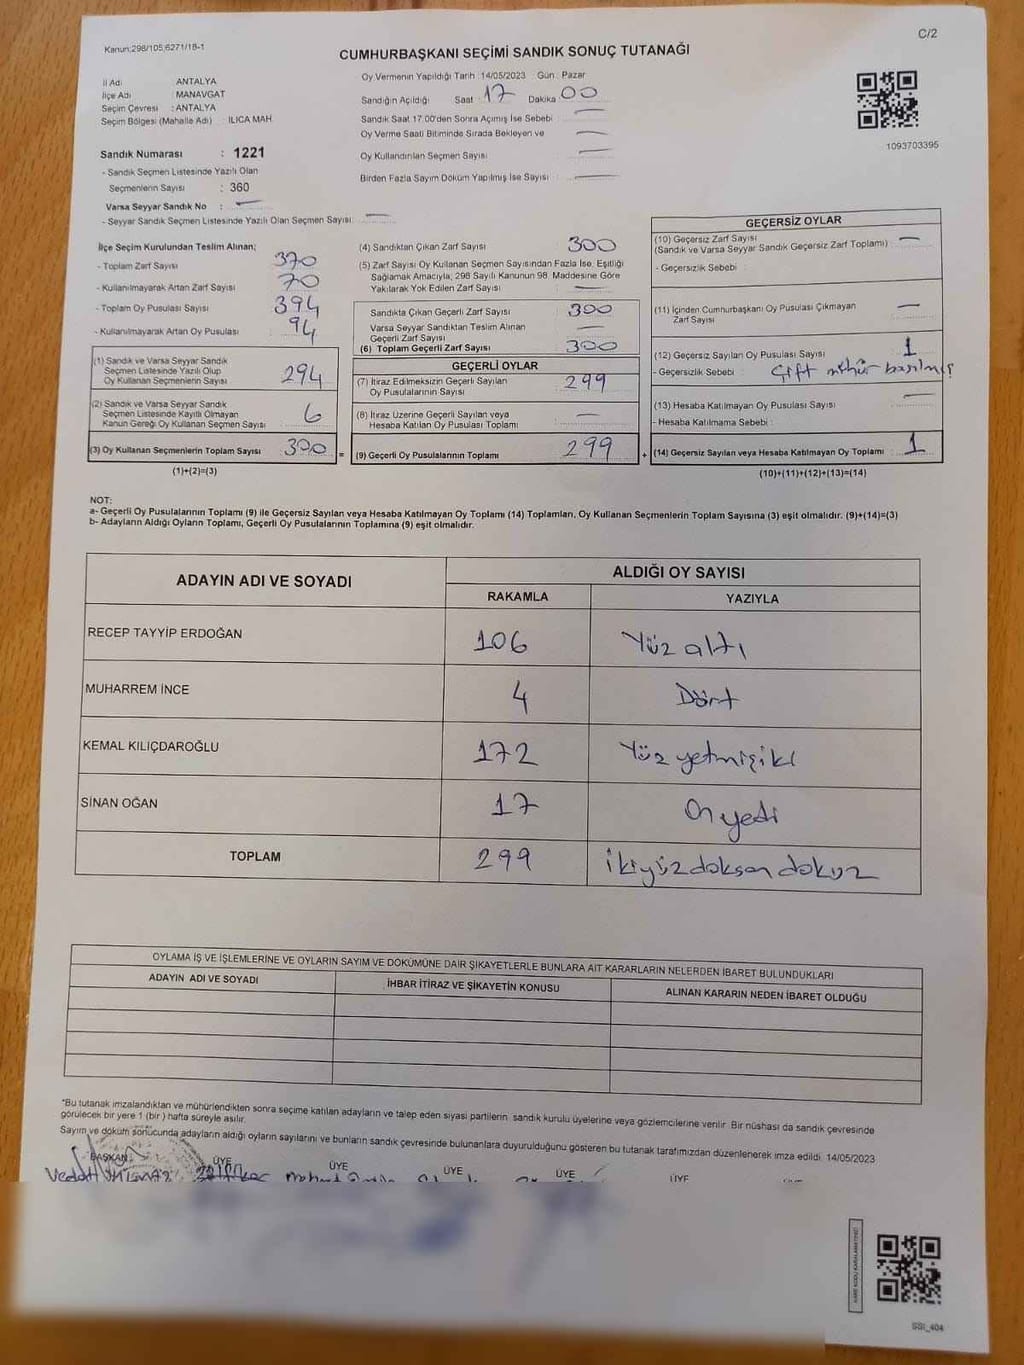 Kanun:298/105,6271/18-1
C/2
CUMHURBAŞKANI SEÇİMİ SANDIK SONUÇ TUTANAĞI
İl Adı : ANTALYA
İlçe Adı : MANAVGAT
Seçim Çevresi : ANTALYA
Seçim Bölgesi (Mahalle Adı) : ILICA MAH
Sandık Numarası : 1221
- Sandık Seçmen Listesinde Yazılı Olan
Seçmenlerin Sayısı : 360
Varsa Seyyar Sandık No : —
- Seyyar Sandık Seçmen Listesinde Yazılı Olan Seçmen Sayısı: —
Oy Vermenin Yapıldığı Tarih :14/05/2023 Gün : Pazar
Sandığın Açıldığı Saat : 17 Dakika : 00
Sandık Saat 17.00'den Sonra Açımış İse Sebebi : —
Oy Verme Saati Bitiminde Sırada Bekleyen ve —
Oy Kullandırılan Seçmen Sayısı : —
Birden Fazla Sayım Döküm Yapılmış İse Sayısı : —
1093703395
İlçe Seçim Kurulundan Teslim Alınan;
- Toplam Zarf Sayısı : 370
- Kullanılmayarak Artan Zarf Sayısı : 70
- Toplam Oy Pusulası Sayısı : 394
- Kullanılmayarak Artan Oy Pusulası : 94
(1) Sandık ve Varsa Seyyar Sandık
Seçmen Listesinde Yazılı Olup
Oy Kullanan Seçmenlerin Sayısı : 294
(2) Sandık ve Varsa Seyyar Sandık
Seçmen Listesinde Kayıtlı Olmayan
Kanun Gereği Oy Kullanan Seçmen Sayısı : 6
(3) Oy Kullanan Seçmenlerin Toplam Sayısı : 300
(1)+(2)=(3)
(4) Sandıktan Çıkan Zarf Sayısı : 300
(5) Zarf Sayısı Oy Kullanan Seçmen Sayısından Fazla İse, Eşitliği
Sağlamak Amacıyla, 298 Sayılı Kanunun 98. Maddesine Göre
Yakılarak Yok Edilen Zarf Sayısı : —
Sandıkta Çıkan Geçerli Zarf Sayısı : 300
Varsa Seyyar Sandıktan Teslim Alınan
Geçerli Zarf Sayısı : —
(6) Toplam Geçerli Zarf Sayısı : 300
GEÇERLİ OYLAR
(7) İtiraz Edilmeksizin Geçerli Sayılan
Oy Pusulalarının Sayısı : 299
(8) İtiraz Üzerine Geçerli Sayılan veya
Hesaba Katılan Oy Pusulası Toplamı : —
= (9) Geçerli Oy Pusulalarının Toplamı : 299
GEÇERSİZ OYLAR
(10) Geçersiz Zarf Sayısı : —
(Sandık ve Varsa Seyyar Sandık Geçersiz Zarf Toplamı)
- Geçersizlik Sebebi :
(11) İçinden Cumhurbaşkanı Oy Pusulası Çıkmayan
Zarf Sayısı : —
(12) Geçersiz Sayılan Oy Pusulası Sayısı : 1
- Geçersizlik Sebebi : Çift mühür basılmış
(13) Hesaba Katılmayan Oy Pusulası Sayısı : —
- Hesaba Katılmama Sebebi :
+ (14) Geçersiz Sayılan veya Hesaba Katılmayan Oy Toplamı : 1
(10)+(11)+(12)+(13)=(14)
NOT:
a- Geçerli Oy Pusulalarının Toplamı (9) ile Geçersiz Sayılan veya Hesaba Katılmayan Oy Toplamı (14) Toplamları, Oy Kullanan Seçmenlerin Toplam Sayısına (3) eşit olmalıdır. (9)+(14)=(3)
b- Adayların Aldığı Oyların Toplamı, Geçerli Oy Pusulalarının Toplamına (9) eşit olmalıdır.
ADAYIN ADI VE SOYADI ALDIĞI OY SAYISI
RAKAMLA YAZIYLA
RECEP TAYYİP ERDOĞAN 106 Yüz altı
MUHARREM İNCE 4 Dört
KEMAL KILIÇDAROĞLU 172 Yüz yetmişiki
SİNAN OĞAN 17 On yedi
TOPLAM 299 ikiyüzdoksan dokuz
OYLAMA İŞ VE İŞLEMLERİNE VE OYLARIN SAYIM VE DÖKÜMÜNE DAİR ŞİKAYETLERLE BUNLARA AİT KARARLARIN NELERDEN İBARET BULUNDUKLARI
ADAYIN ADI VE SOYADI İHBAR İTİRAZ VE ŞİKAYETİN KONUSU ALINAN KARARIN NEDEN İBARET OLDUĞU
*Bu tutanak imzalandıktan ve mühürlendikten sonra seçime katılan adayların ve talep eden siyasi partilerin sandık kurulu üyelerine veya gözlemcilerine verilir. Bir nüshası da sandık çevresinde
görülecek bir yere 1 (bir) hafta süreyle asılır.
Sayım ve döküm sonucunda adayların aldığı oyların sayılarını ve bunların sandık çevresinde bulunanlara duyurulduğunu gösteren bu tutanak tarafımızdan düzenlenerek imza edildi. 14/05/2023
BAŞKAN ÜYE ÜYE ÜYE ÜYE ÜYE
Vedat
SSI_404